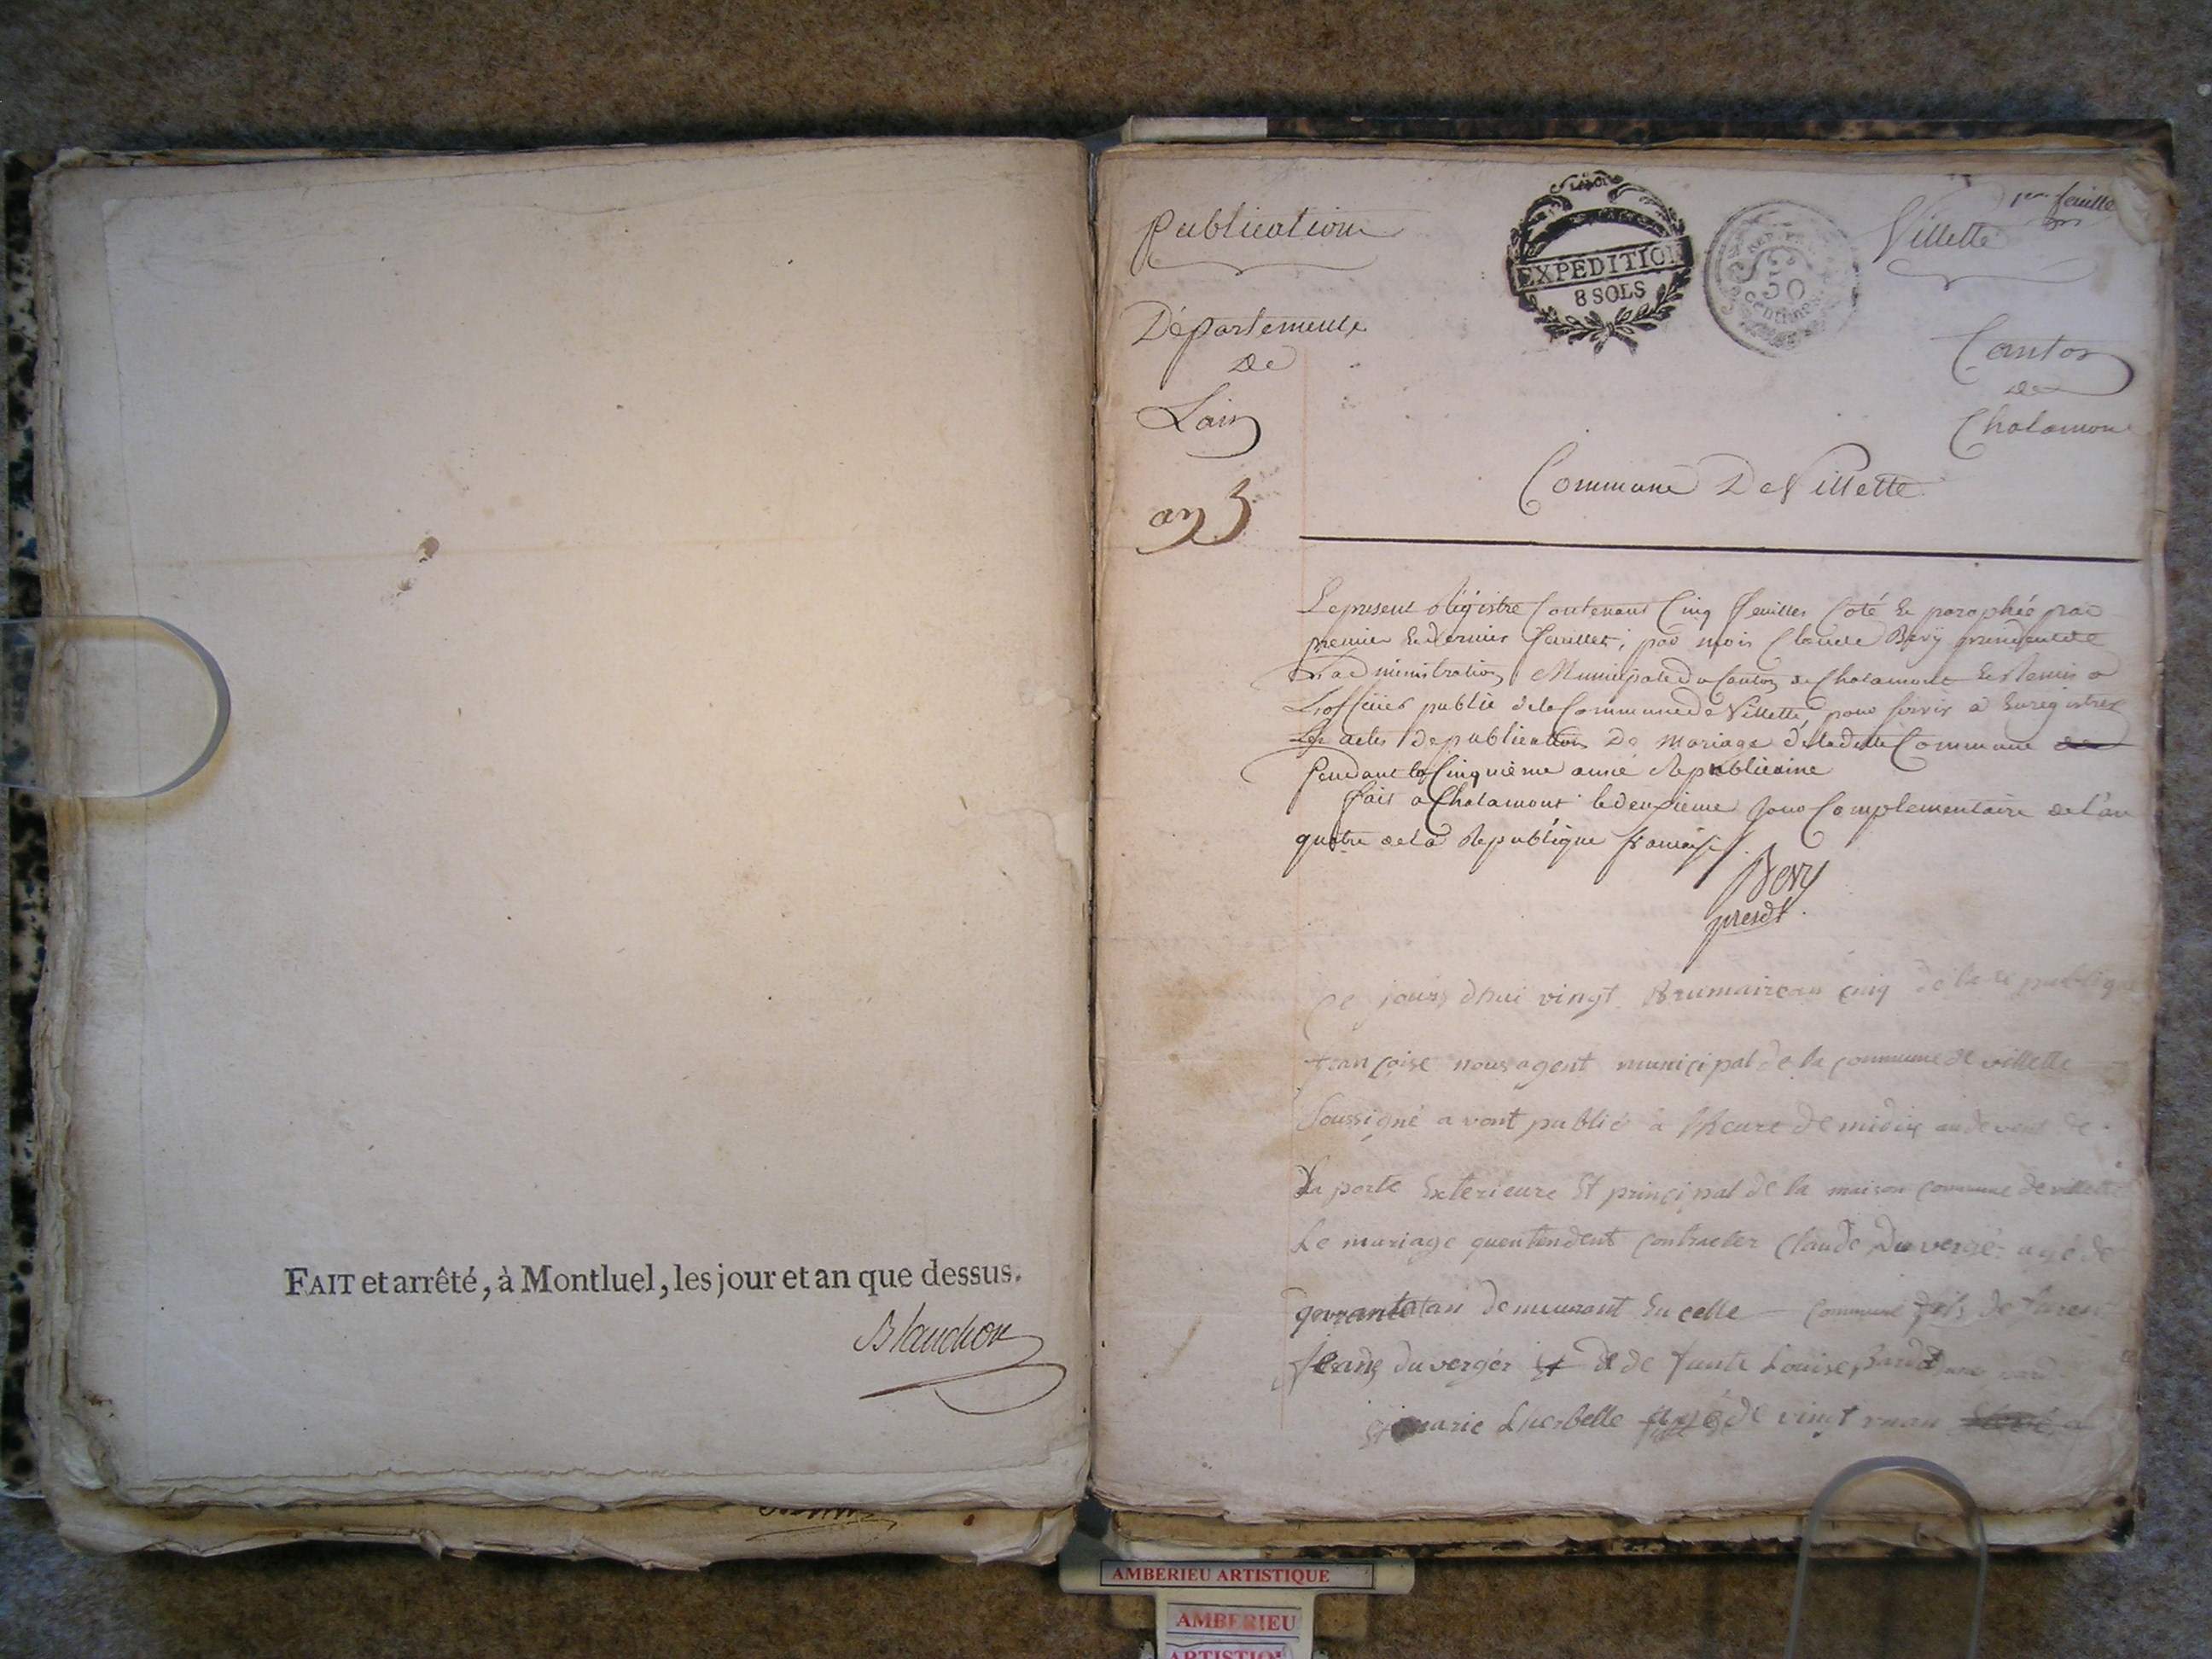 FAIT et arrêté, à Montluel, les jour et an que dessus.
Blanchon
Publication
EXPEDITION
8 SOLS
50
Centimes
1er feuille
Villette
Département
De
Lain
an 5
Canton
de
Chalamon
Commune De Villette
Le present Régistre Contenant Cinq feuilles Coté & parophée par
premier & dernier feuillet, par moi Claude Bery president de
L'administration Municipale du Canton de Chalamont & Remis a
L'officier public de la Commune de Villette, pour servir a Enregistrer
Les actes de publication De Mariage de ladite Commune
pendant la Cinquième année Republicaine
fait a Chalamont le deuxieme Jour Complementaire de l'an
quatre de la Republique francaise
Bery
presdt.
Ce jours dhui vingt Brumaire an cinq de la republique
françoise nous agent municipal de la commune de villette
Soussigné avont publié à lheure de midix audevent de
La porte Exterieure Et principal de la maison commune de villette
Le mariage quentendent contracter Claude Duverger agé de
quarante an demeurant en celle commune fils de
Jean duverger de faute Louise
Et marie Lherbelle agé de vingt
AMBERIEU ARTISTIQUE
AMBERIEU
ARTISTIQ